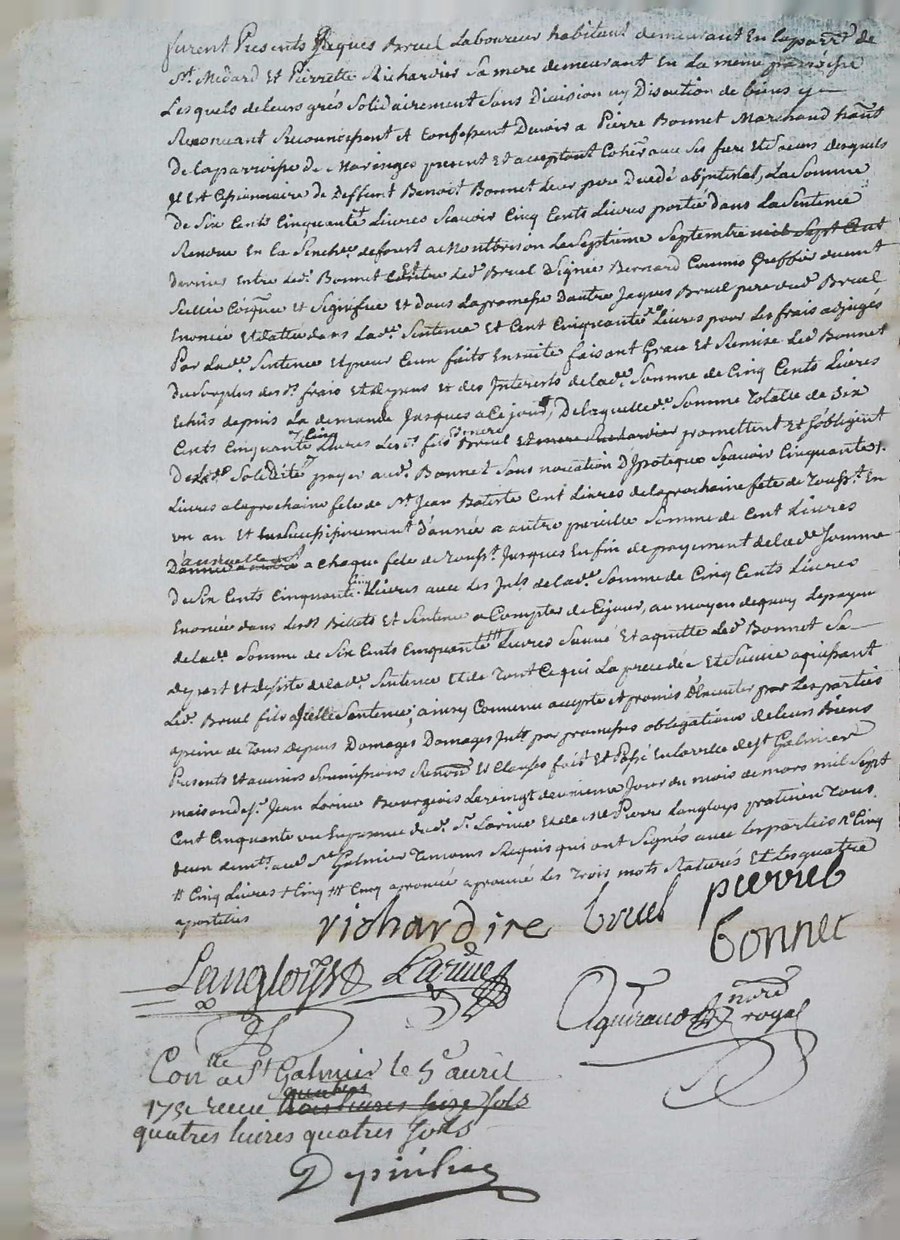 furent Presents Jacques Bruel Laboureur habitant demeurant En la parr.e de
St. Médard Et Pierrette Richardier Sa mere demeurant En La meme parroisse
Lesquels de leurs grés Solidairement Sans Division ny Discution de biens y
Renonçant Reconnoissent Et Confessent Devoir a Pierre Bonnet Marchand habt.
De la parroisse de Maringes present Et acceptant Coher avec Ses frere Et Sœurs desquels
il Est Cessionnaire de Deffunt Benoit Bonnet Leur pere Decedé abintestat, La Somme
De Six Cents Cinquante Livres Scavoir Cinq Cents Livres portée Dans La Sentence
Rendue En la Senéchée. de forest a Montbrison Le Septieme Septembre mil Sept Cent
Dernier Entre led. Bonnet Et Led. Bruel Signée Bernard Commis Greffier duement
Scellée Et Signifiée Et Dans La promesse Dautre Jacques Bruel pere dud. Bruel
Enoncée Et dattée dans Lade. Sentence Et Cent Cinquante Livres pour Les frais adjugés
Par Lade. Sentence Et pour Ceux faits Ensuite faisant Grace Et Remise Led. Bonnet
Du Surplus desd. frais Et depens Et des Interests de lade. Somme de Cinq Cents Livres
Echus depuis La demande Jusques a Ce jour, De laquelle de. Somme Totalle de Six
Cents Cinquante Cinq Livres Lesd. fils Et mere Bruel Et mere Richardier promettent Et S'obligent
De lade. Solidité payer aud. Bonnet Sans novation D'Ipoteque Scavoir Cinquante
Livres a la prochaine fete de St. Jean Batiste Cent Livres de la prochaine fete de Touss.t En
un an Et Successivement D'année a autre pareille Somme de Cent Livres
annuellemt. a Chaque fete de Touss.t Jusques En fin de payement de lade. Somme
De Six Cents Cinquante Cinq Livres avec Les Jnts. de lade. Somme de Cinq Cents Livres
Enoncée dans Lesd. Billets Et Sentence a Compter de Cejour, au moyen de quoy Le payem.
de lade. Somme de Six Cents Cinquante Livres Et aquitté Led. Bonnet Se
depart Et desiste de lade. Sentence Et de Tout Ce qui La precedée Et Suivie aquiessant
Led. Bruel fils a Jcelle Sentence; ainsy Convenu accepté Et promis D'executer par Les parties
a peine de Tous depens Domages Domages Jnts. par promesses obligations de leurs Biens
Presents Et avenirs Soumissions Renonc. Et Clauses fait Et Passé En la ville de St. Galmier
maison de Sr. Jean Larive Bourgeois Le vingt deuxieme Jour du mois de mars mil Sept
Cent Cinquante un En presance dud. Sr. Larive Et de Me Pierre Langloys praticien Tous
deux demts. aud. St. Galmier Temoins Requis qui ont Signés avec Les parties Cinq
# Cinq Livres + Cinq # Cinq aprouvé Les Trois mots Raturés Et Les quatre
apostilles
richardire bruel pierre b
bonnet
Langloys Larive
Aquiraud nore. royal
Conlle a St Galmier le 5e avril
1751 receu quatres trois livres treze sols
quatres livres quatres sols
Depinhac